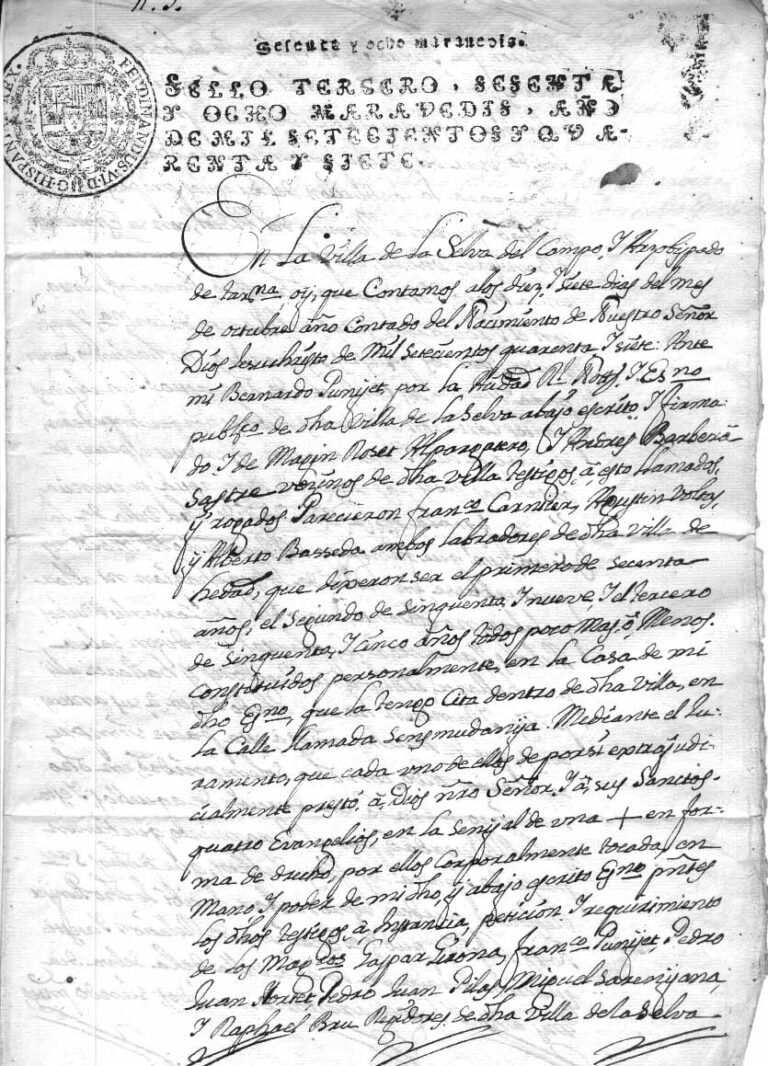 n. 5.
Sesenta y ocho maravedis.
SELLO TERCERO, SESENTA
Y OCHO MARAVEDIS, AÑO
DE MIL SETECIENTOS Y QVA-
RENTA Y SIETE.
FERDINANDUS VI D G HISPANIA REX
En La Villa de La Selva del Campo, Y Arzobispado
de tarna, oy, que Contamos alos diez, Y siete dias del mes
de octubre año Contado del Nacimiento de Nuestro Señor
Dios Jesuchristo de Mil Setecientos quarenta Y siete: Ante
mi Bernardo Punijet por la Rl. Y Esno
pubco de dha Villa de la Selva abajo escrito, Y firma-
do, Y de Magin Roset Alpargatero, Y Andres Barberà
Sastre vezinos de dha Villa testigos, à esto llamados,
y rogados Parecieron franco Carnicer, Agustin Voltas,
y Alberto Basseda ambos labradores de dha Villa de
hedad, que dixeron ser el primero de secenta
años, el Segundo de Sinquenta, Y nueve, Y el tercero
de Sinquenta, Y cinco años todos poco Mas, ò, Menos.
Constituidos personalmente, en la Casa de mi
dho Esno, que la tengo Cita dentro de dha Villa, en
la Calle llamada Sensmudanija. Mediante el Ju-
ramento, que cada uno de ellos de por si extrajudi-
cialmente prestó, à, Dios nro Señor, Y à, sus Sanctos
quatro Evangelios, en la Señyal de vna + en for-
ma de drecho, por ellos Corporalmente tocada, en
Mano, Y poder de mi dho, y abajo escrito Esno, pntes
los dhos testigos, à, Instancia, peticion Y requirimiento
de Los Magcos Gaspar Girona, franco Punijet, Pedro
Juan Hortet, Pedro Juan Pilas, Miguel Sarenyana
Y Raphael Bru Regidores de dha Villa de la Selva